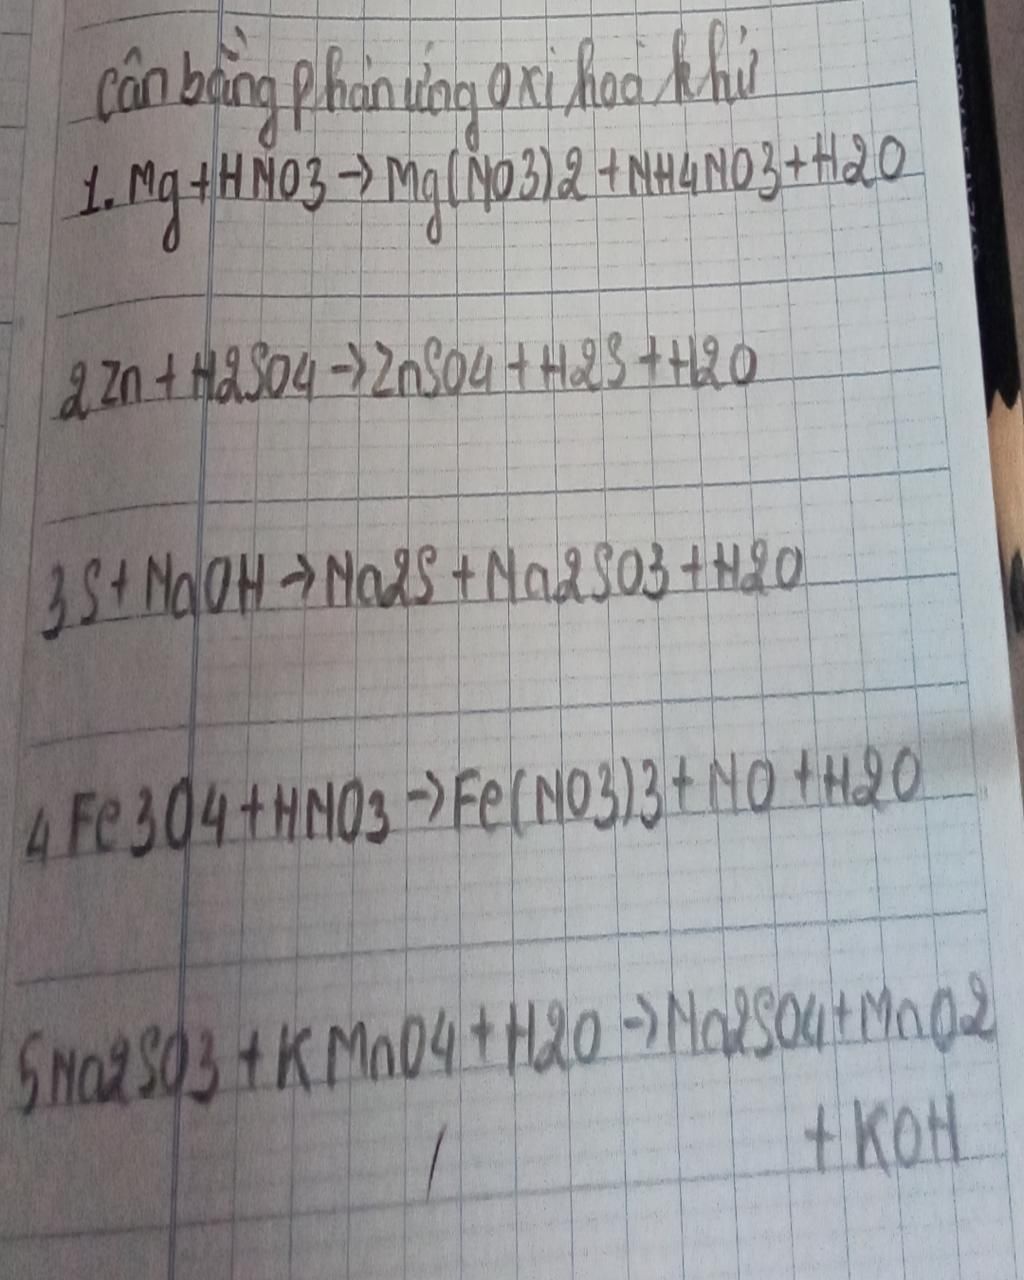 cân bằng phản ứng oxi hoá khử
1. Mg+HNO3→Mg(NO3)2+NH4NO3+H2O
2 Zn+H2SO4→ZnSO4+H2S+H2O
3 S+NaOH→Na2S+Na2SO3+H2O
4 Fe3O4+HNO3→Fe(NO3)3+NO+H2O
5 Na2SO3+KMnO4+H2O→Na2SO4+MnO2
+KOH